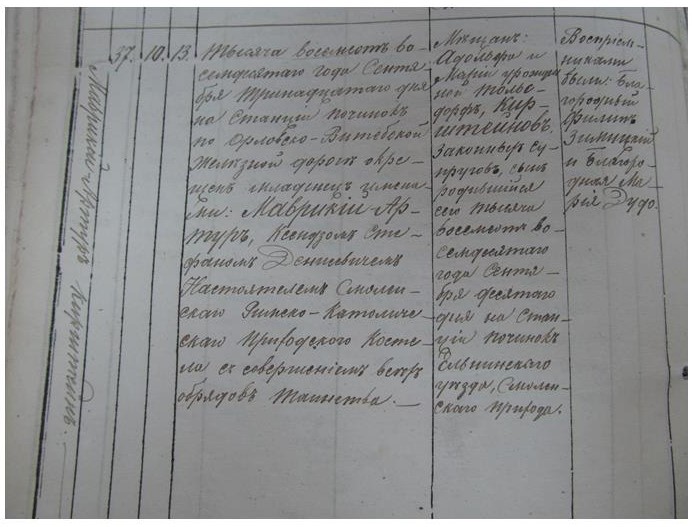 Маврикий-Артуръ Кирштейнъ.
37. 10. 13. Тысяча восемсотъ во-
семдесятаго года Сентя-
бря тринадцатаго дня
на Станціи Починокъ
по Орловско-Витебской
железной дорогѣ окре-
щенъ младенецъ имена-
ми: Маврикій Ар-
туръ, Ксендзомъ Сте-
фаномъ Денисевичемъ
Настоятелемъ Смолен-
скаго Римско-Католиче-
скаго Приходского Косте-
ла съ совершеніемъ всѣхъ
обрядовъ таинства. —
Мѣщанъ:
Адольфа и
Маріи урожден-
ной
дорфъ, Кир-
штейновъ.
законныхъ су-
пруговъ, сынъ
родившійся
сего тысяча
восемсотъ во-
семдесятаго
года Сентя-
бря десятаго
дня на Стан-
ціи Починокъ
Ельнинскаго
уѣзда, Смолен-
скаго Прихода.
Воспріем-
никами
были: Бла-
городный
Филипъ
Зимицкій
и Благоро-
дная Ма-
рія Дудо.